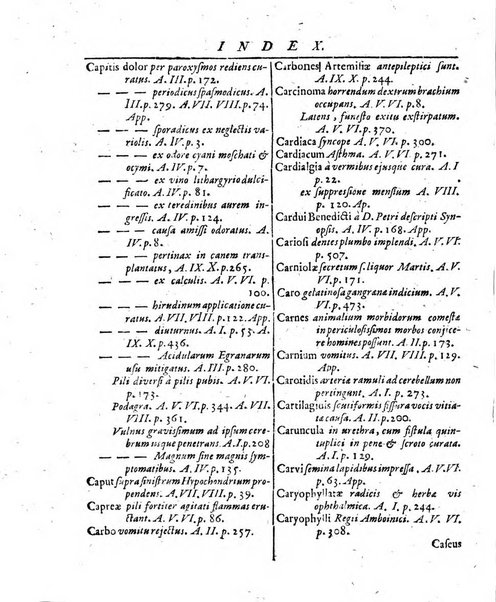 INDEX.
Capitis dolor per paroxysmos rediens cu-
ratus. A. III. p. 172.
— — — periodicus spasmodicus. A.
III. p. 279. A. VII. VIII. p. 74.
App.
— — — sporadicus ex neglectis va-
riolis. A. IV. p. 3.
— — — ex odore cyani moschati &
ocymi. A. IV. p. 7.
— — — ex vino lithargyrio dulci-
ficato. A. IV. p. 81.
— — — ex teredinibus aurem in-
gressis. A. IV. p. 124.
— — — causa amissi odoratus. A.
IV. p. 8.
— — — pertinax in canem trans-
plantatus, A. IX. X. p. 265.
— — — ex calculis. A. V. VI. p.
100.
— — — hirudinum applicatione cu-
ratus. A. VII. VIII. p. 122. App.
— — — diuturnus. A. I. p. 53. A.
IX. X. p. 436.
— — — Acidularum Egranarum
usu mitigatus. A. III. p. 280.
Pili diversi à pilis pubis. A. V. VI.
p. 173.
Podagra. A. V. VI. p. 344. A. VII.
VIII. p. 361.
Vulnus gravissimum ad ipsum cere-
brum usque penetrans. A. I. p. 208
— — — Magnum sine magnis sym-
ptomatibus. A. IV. p. 135.
Caput supra sinistrum Hypochondrium pro-
pendens. A. VII. VIII. p. 39.
Capreæ pili fortiter agitati flammas eru-
ctant. A. V. VI. p. 86.
Carbo vomitu rejectus. A. II. p. 257.
Carbones Artemisiæ antepileptici sunt.
A. IX. X. p. 244.
Carcinoma horrendum dextrum brachium
occupans. A. V. VI. p. 8.
Latens, funesto exitu exstirpatum.
A. V. VI. p. 370.
Cardiaca syncope A. V. VI. p. 300.
Cardiacum Asthma. A. V. VI. p. 271.
Cardialgia à vermibus ejusque cura. A. I
p. 22.
ex suppressione mensium A. VIII.
p. 120. Ap.
Cardui Benedicti à D. Petri descripti Syn-
opsis. A. IV. p. 168. App.
Cariosi dentes plumbo implendi. A. V. VI.
p. 507.
Carniolæ secretum s. liquor Martis. A. V.
VI. p. 171.
Caro gelatinosa gangrænæ indicium. A. V.
VI. p. 473.
Carnes animalium morbidorum comestæ
in periculosissimos morbos conjice-
re homines possunt. A. II. p. 173.
Carnium vomitus. A. VII. VIII. p. 129.
App.
Carotidis arteriæ ramuli ad cerebellum non
pertingunt. A. I. p. 273.
Cartilaginis scutiformis fissura vocis vitia-
tæ causa. A. II. p. 200.
Caruncula in urethra, cum fistula quin-
tuplici in pene & scroto curata.
A. I. p. 129.
Carvi semina lapidibus impressa. A. V. VI.
p. 63. App.
Caryophyllatæ radicis & herbæ vis
ophthalmica. A. I. p. 244.
Caryophylli Regii Amboinici. A. V. VI.
p. 308.
Caseus